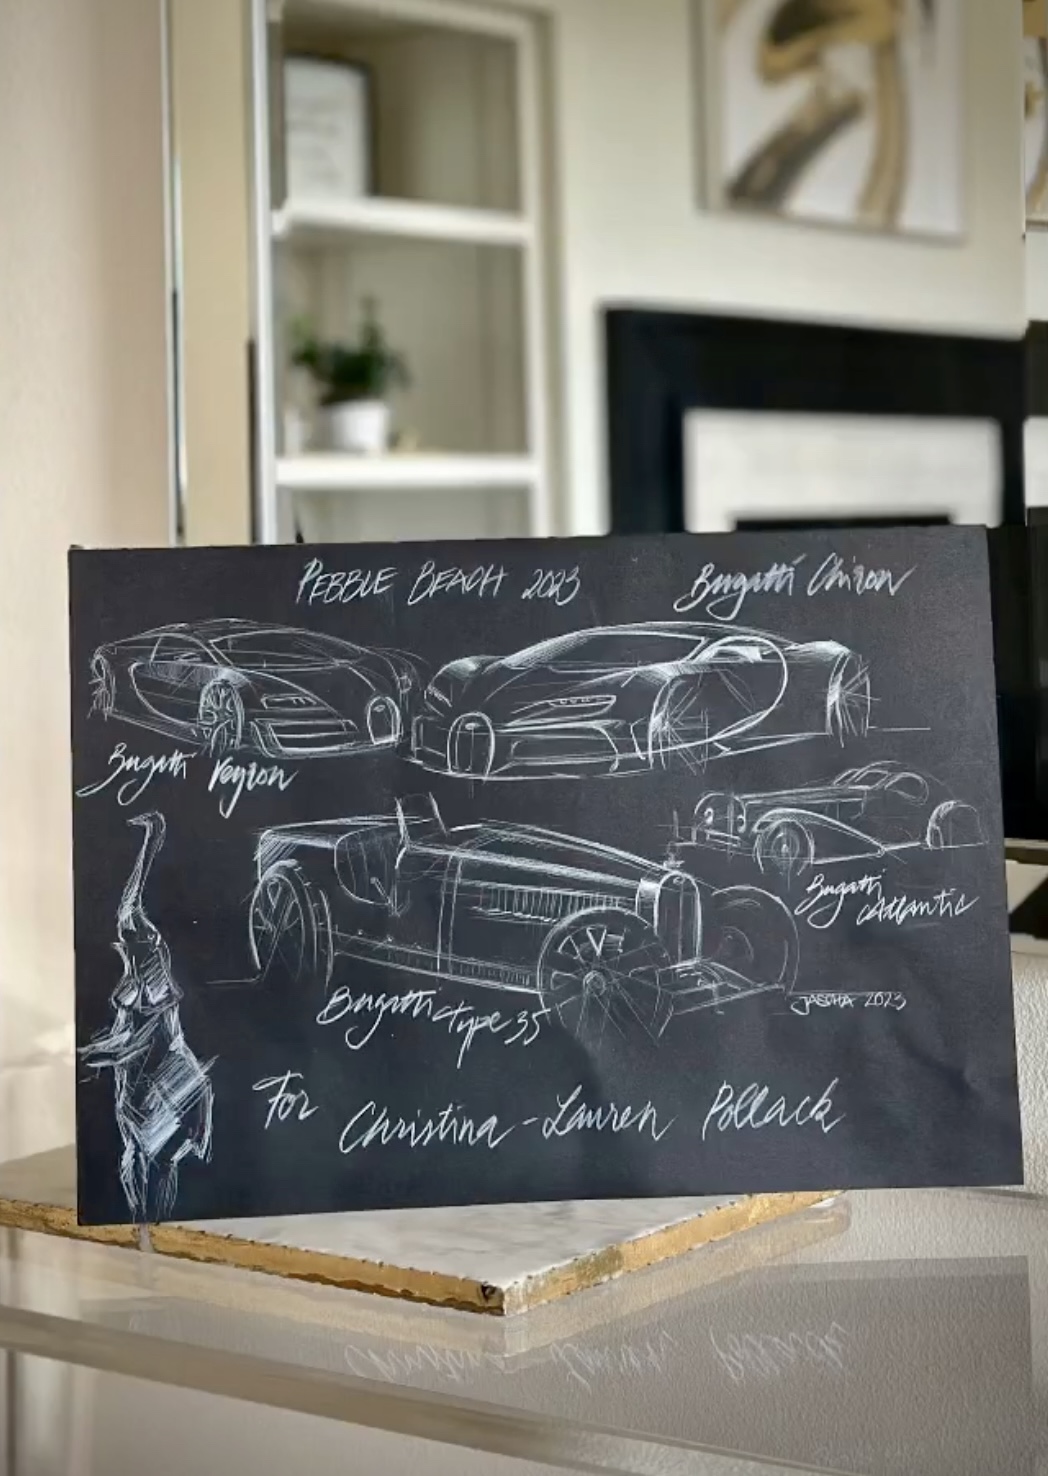 PEBBLE BEACH 2023
Bugatti Chiron
Bugatti Veyron
Bugatti
Atlantic
Bugatti Type 35
JASCHA 2023
For Christina-Lauren Pollack